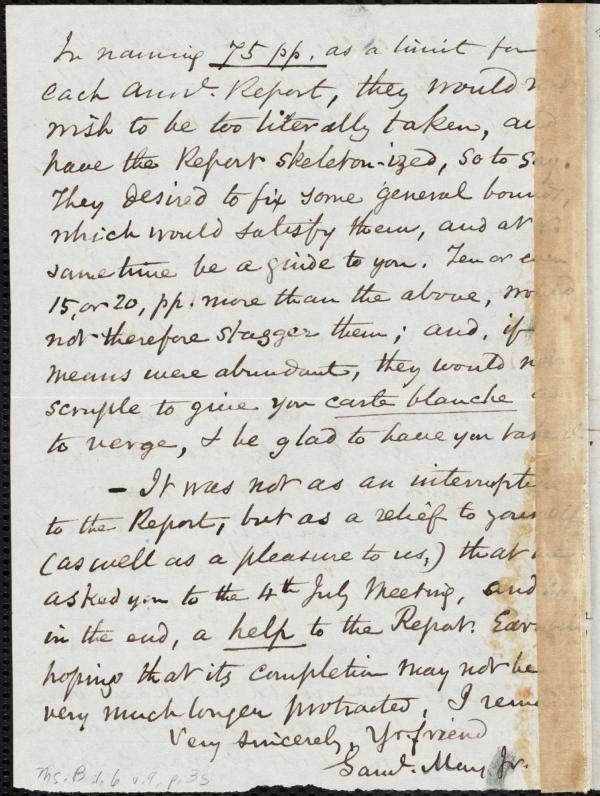 In naming 75 pp. as a limit for
each annl. Report, they would not
wish to be too literally taken, and
have the Report skeleton-ized, so to say.
They desired to fix some general bounds,
which would satisfy them, and at
same time be a guide to you. Ten or even
15, or 20, pp. more than the above, would
not therefore stagger them; and, if
means were abundant, they would not
scruple to give you carte blanche as
to verge, & be glad to have you take it.
- It was not as an interruption
to the Report, but as a relief to yourself
(as well as a pleasure to us,) that we
asked you to the 4th July Meeting, and
in the end, a help to the Report. Earnestly
hoping that its completion may not be
very much longer protracted, I remain
Very sincerely, Yr. friend
Saml. May, Jr.
Ms. B.1.6 v.9, p.35